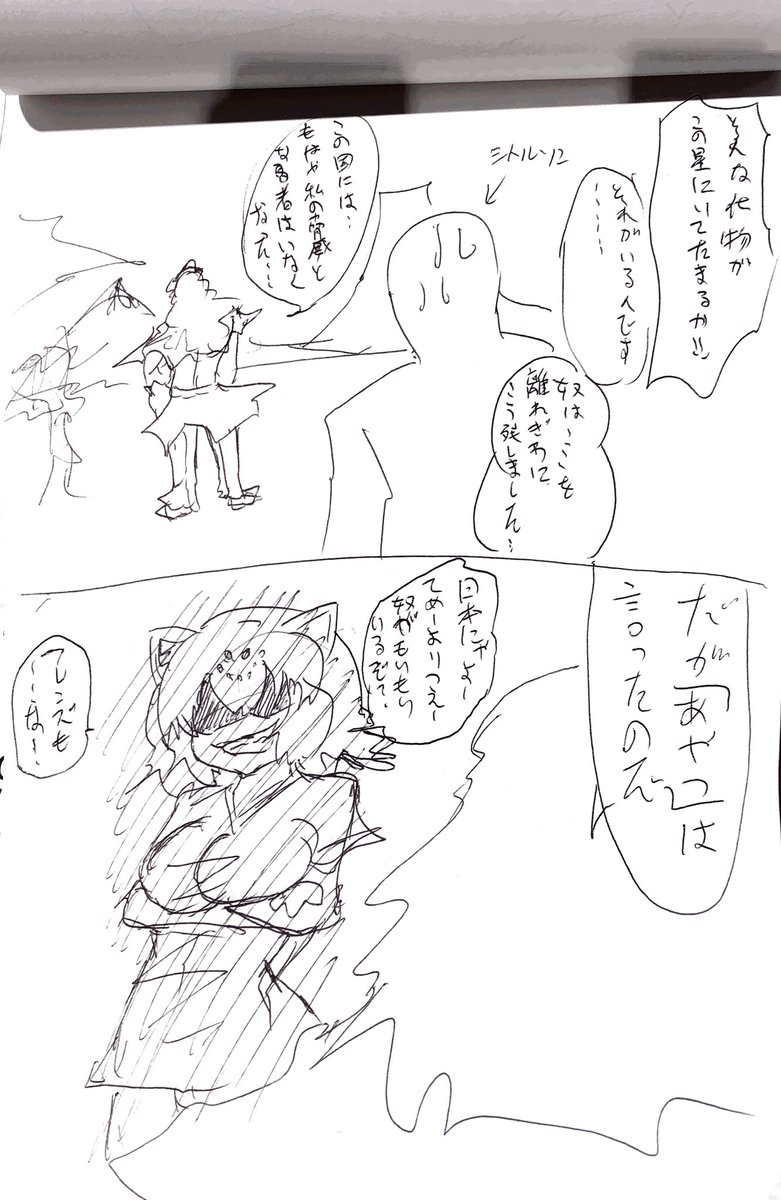 そんな化物が
この星にいてたまるか!!
それがいるんです
……
シトルリン
奴は…ここを
離れぎわに
こう残しました…
この国には…
もはや私の脅威と
なる者はいなく
なった…
だが「あやつ」は
言ったのだ
日本にゃよー
てめーよりつえー
奴がもいもい
いるぞ?
フレンズも
…な…